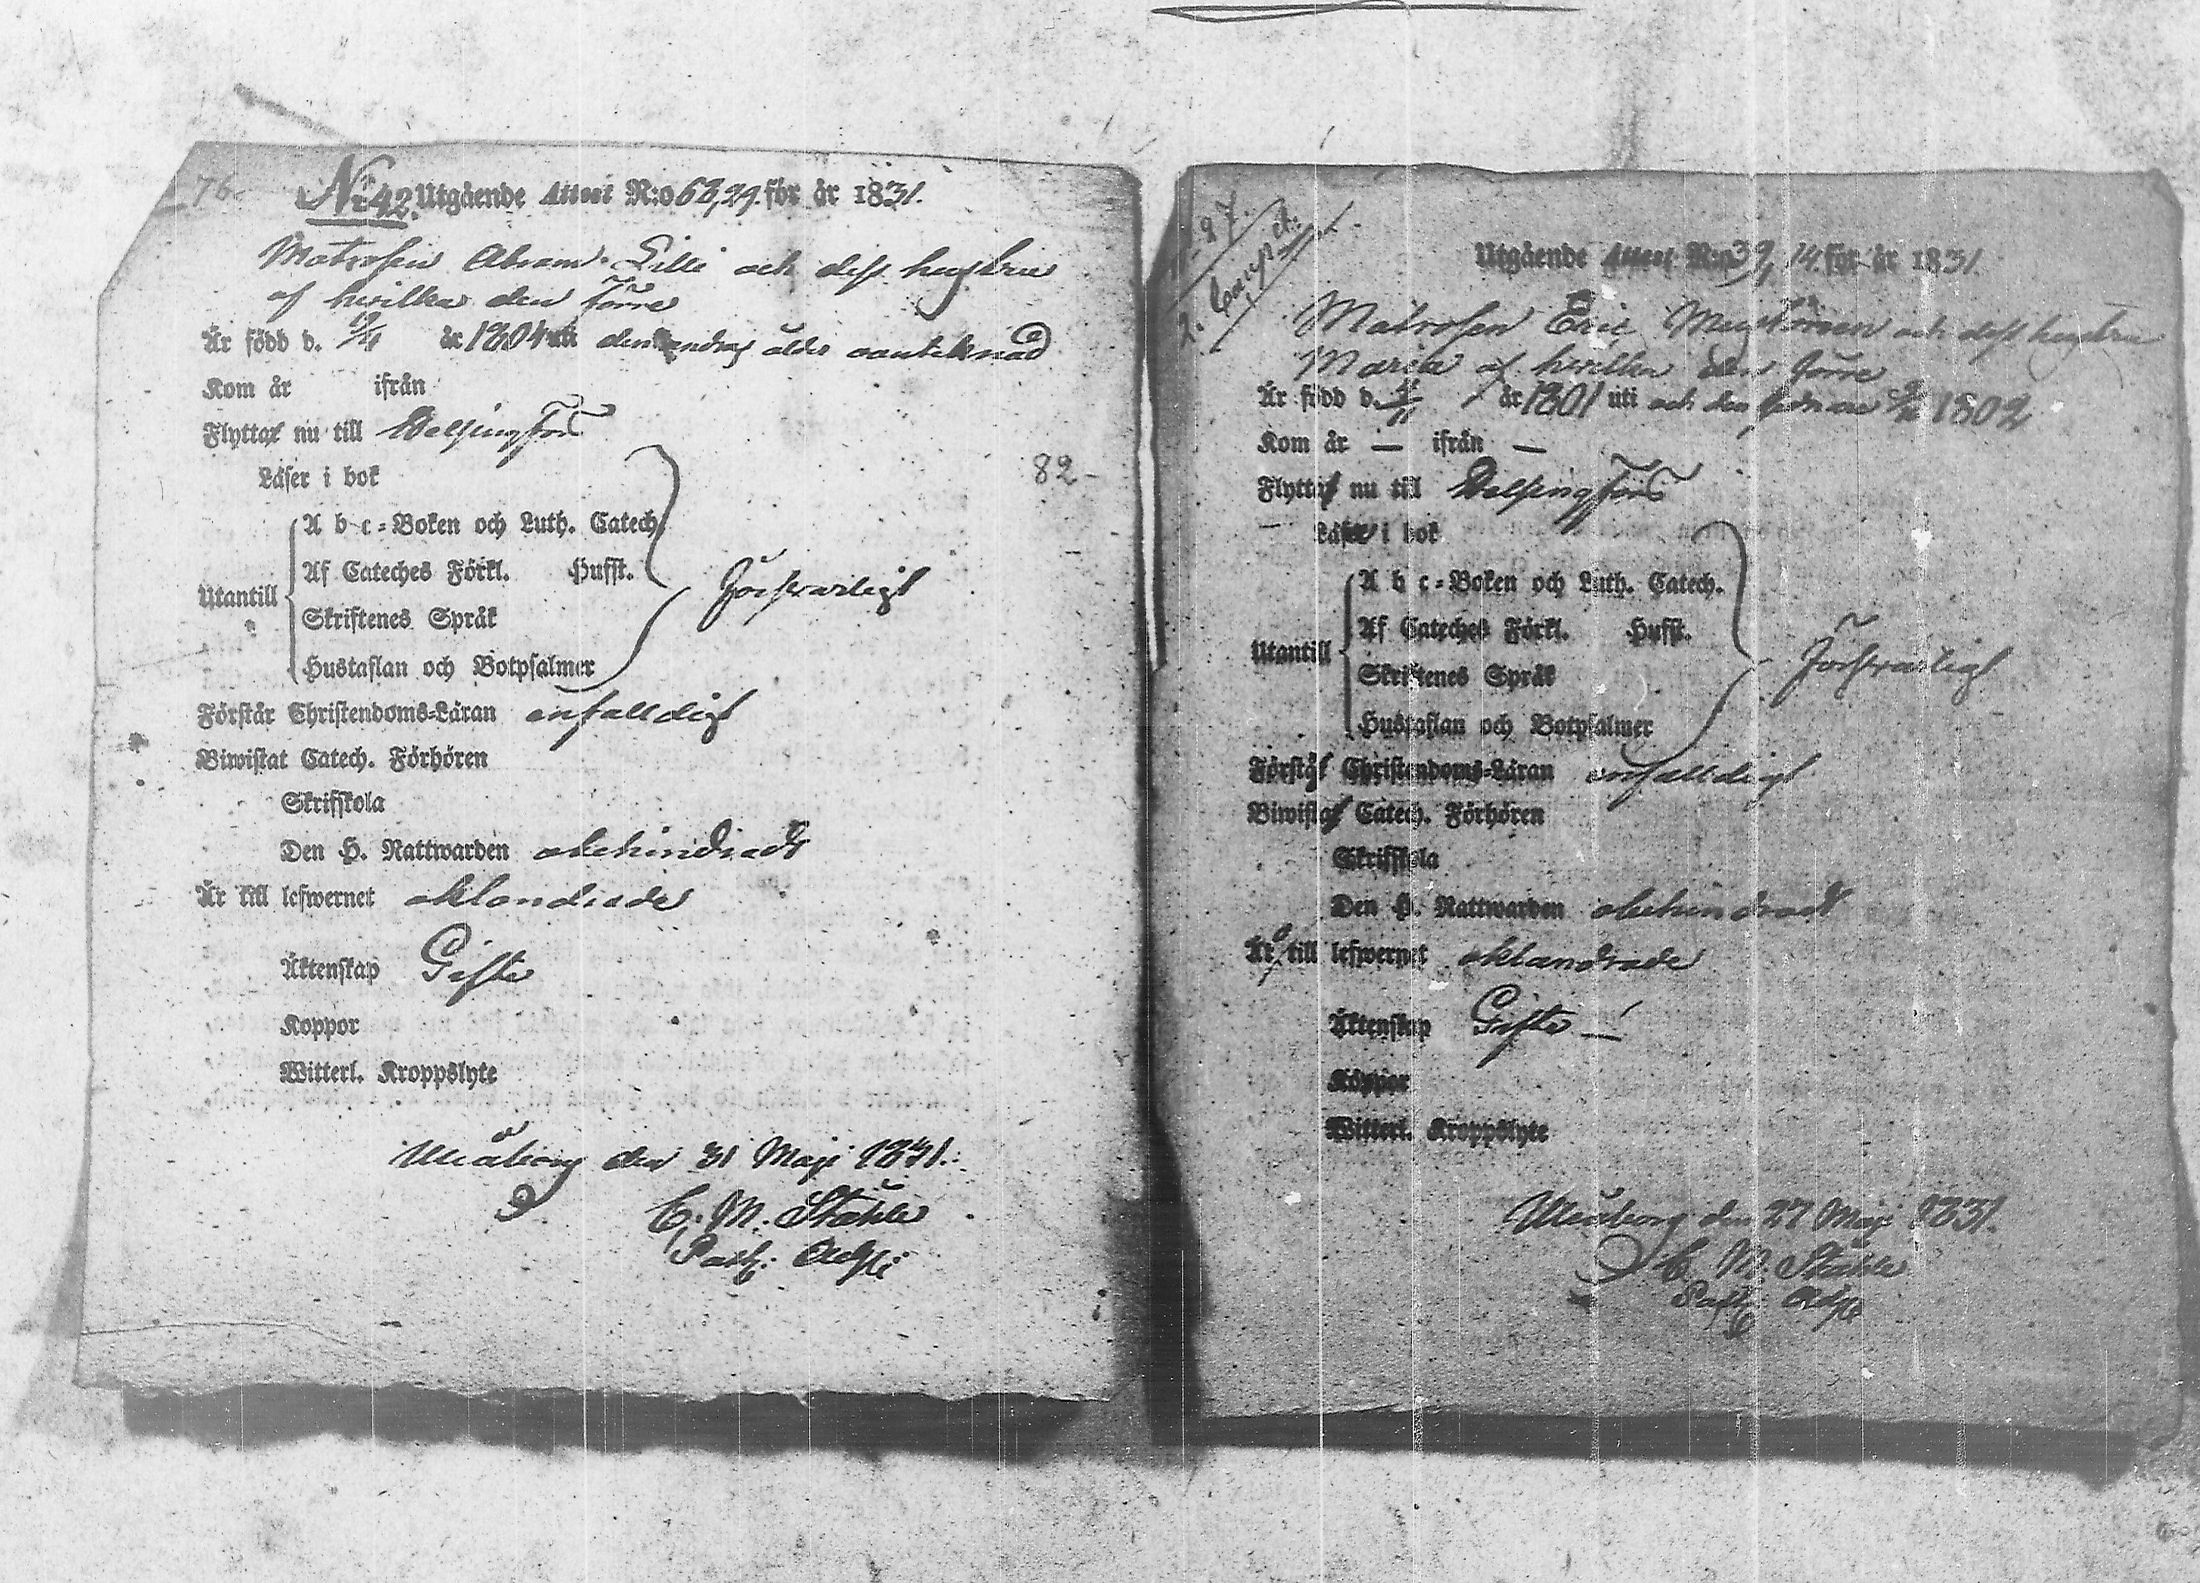 76.
No 42. Utgående Attest N:o 63, 29. för år 1831.
Matrosen Abram Lilli och dess hustru
af hvilka den förre
Är född d. år 1804 uti den andras ålder oantecknad
Kom år ifrån
Flyttar nu till Helsingfors
Läser i bok
82
Utantill
A b c-Boken och Luth. Catech.
Af Cateches Förkl. Husst.
Skriftenes Språk
Hustaflan och Botpsalmer
försvarligt
Förstår Christendoms-Läran enfalldigt
Biwistat Catech. Förhören
Skrifskola
Den H. Nattwarden obehindradt
Är till lefwernet oklandrade
Äktenskap Gifte
Koppor
Witterl. Kroppslyte
Uleåborg den 31 Maji 1831.
C. M. Ståhle
Past. Adj.
Utgående Attest N:o 39, 14. för år 1831
Matrosen Eric och dess hustru
Maria af hvilka den förre
Är född d. år 1801 uti och den 1802
Kom år — ifrån —
Flytta nu till Helsingfors
Läsa i bok
Utantill
A b c-Boken och Luth. Catech.
Af Cateches Förkl. Husst.
Skriftenes Språk
Hustaflan och Botpsalmer
försvarligt
Förstå Christendoms-Läran enfalldigt
Biwista Catech. Förhören
Skrifskola
Den H. Nattwarden obehindradt
Äro till lefwernet oklandrade
Äktenskap Gifte —
Koppor
Witterl. Kroppslyte
Uleåborg den 27 Maji 1831.
C. M. Ståhle
Past. Adj.